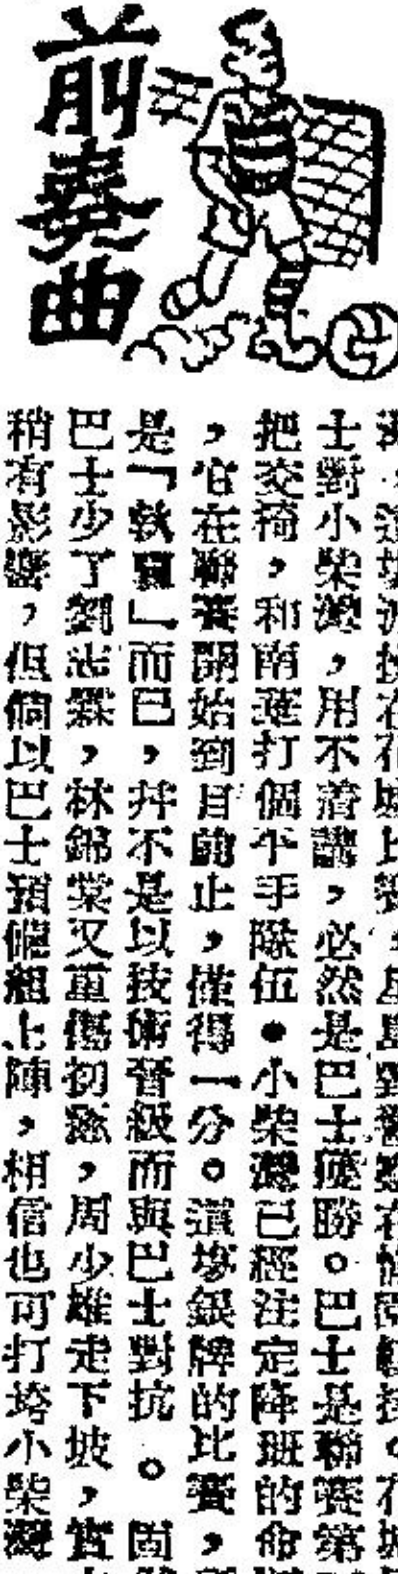 前奏曲
士對小柴灣，用不着講，必然是巴士獲勝。巴士是聯賽第
把交椅，和南華打個平手隊伍。小柴灣已經注定降班的命
，它在聯賽開始到目前止，僅得一分。這場銀牌的比賽，
是「執籌」而已，并不是以技術晉級而與巴士對抗。固
巴士少了劉志霖，林錦棠又重傷初癒，周少雄走下坡，實
稍有影響，但倘以巴士預備組上陣，相信也可打垮小柴灣